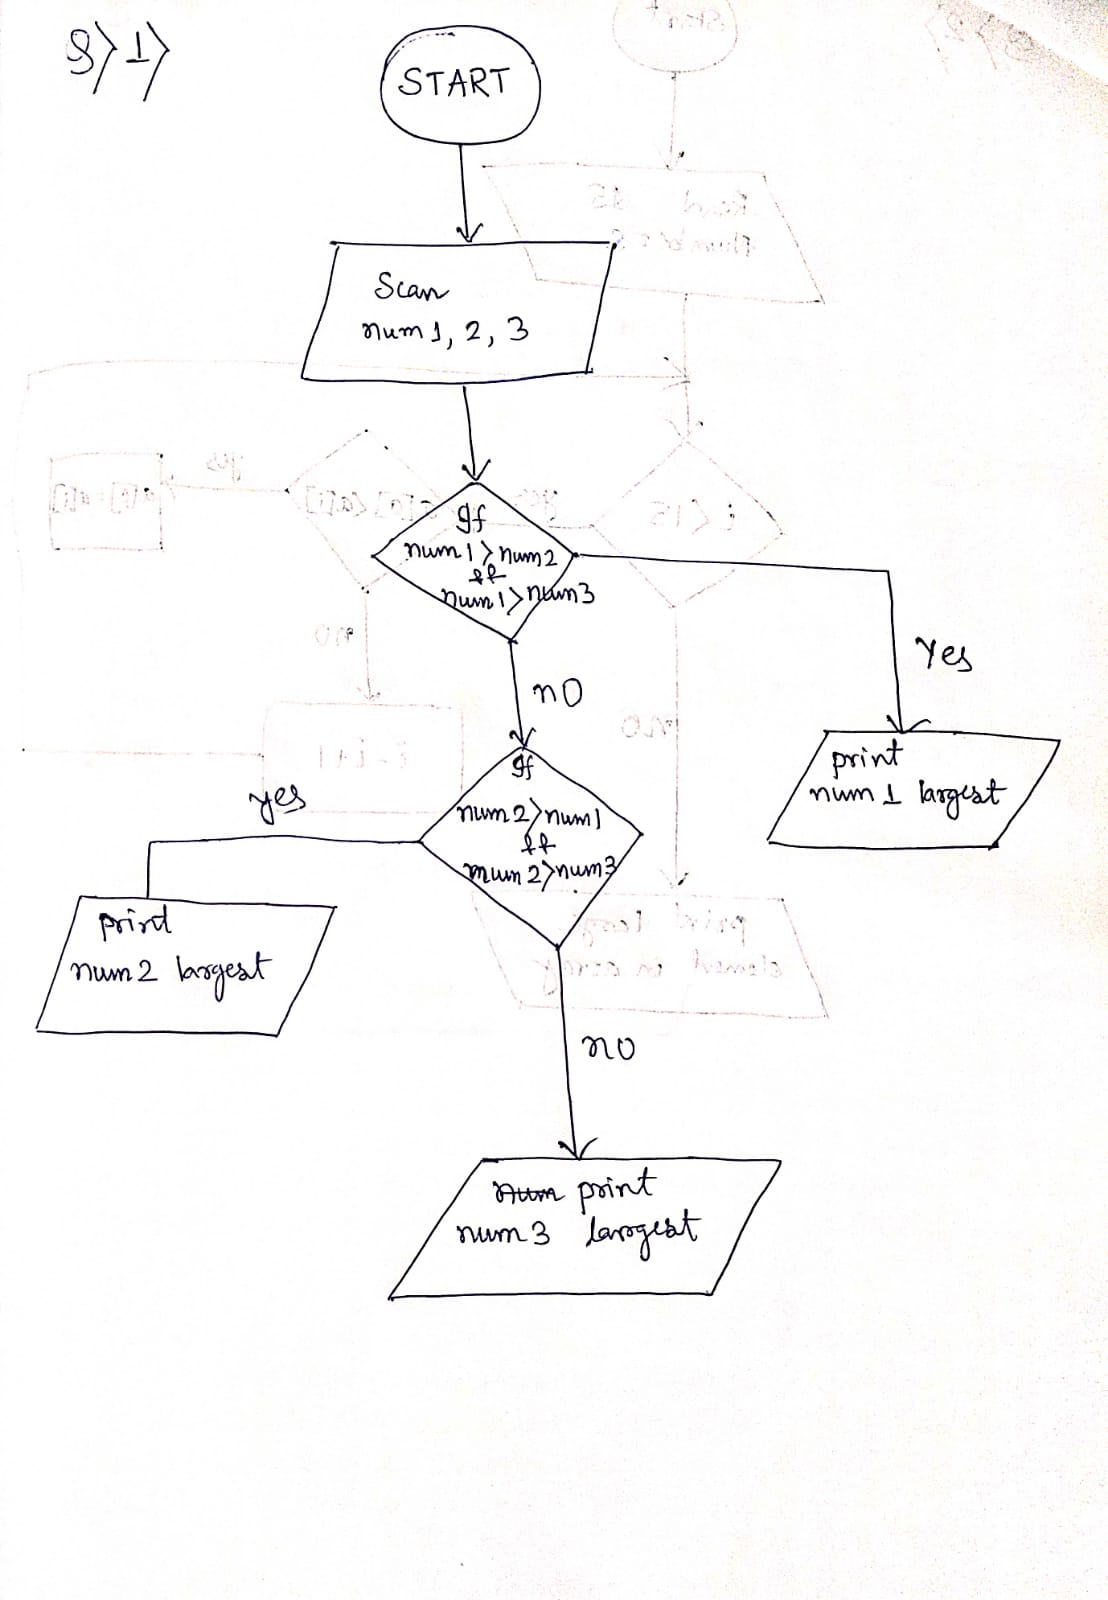 8) 1)
START
Scan
num 1, 2, 3
If
num 1 > num 2
&&
num 1 > num 3
Yes
no
print
num 1 largest
If
num 2 > num 1
&&
num 2 > num 3
yes
print
num 2 largest
no
num print
num 3 largest